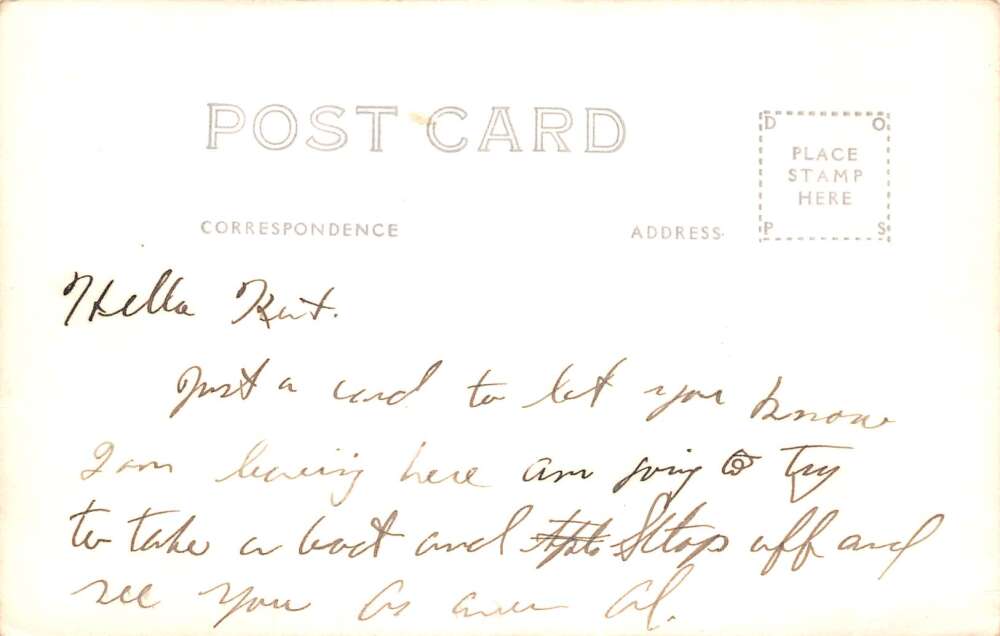 POST CARD
D O
PLACE
STAMP
HERE
P S
CORRESPONDENCE ADDRESS
Hello Kat.
Just a card to let you know
I am leaving here am going to try
to take a boat and Stop off and
see you As Al.